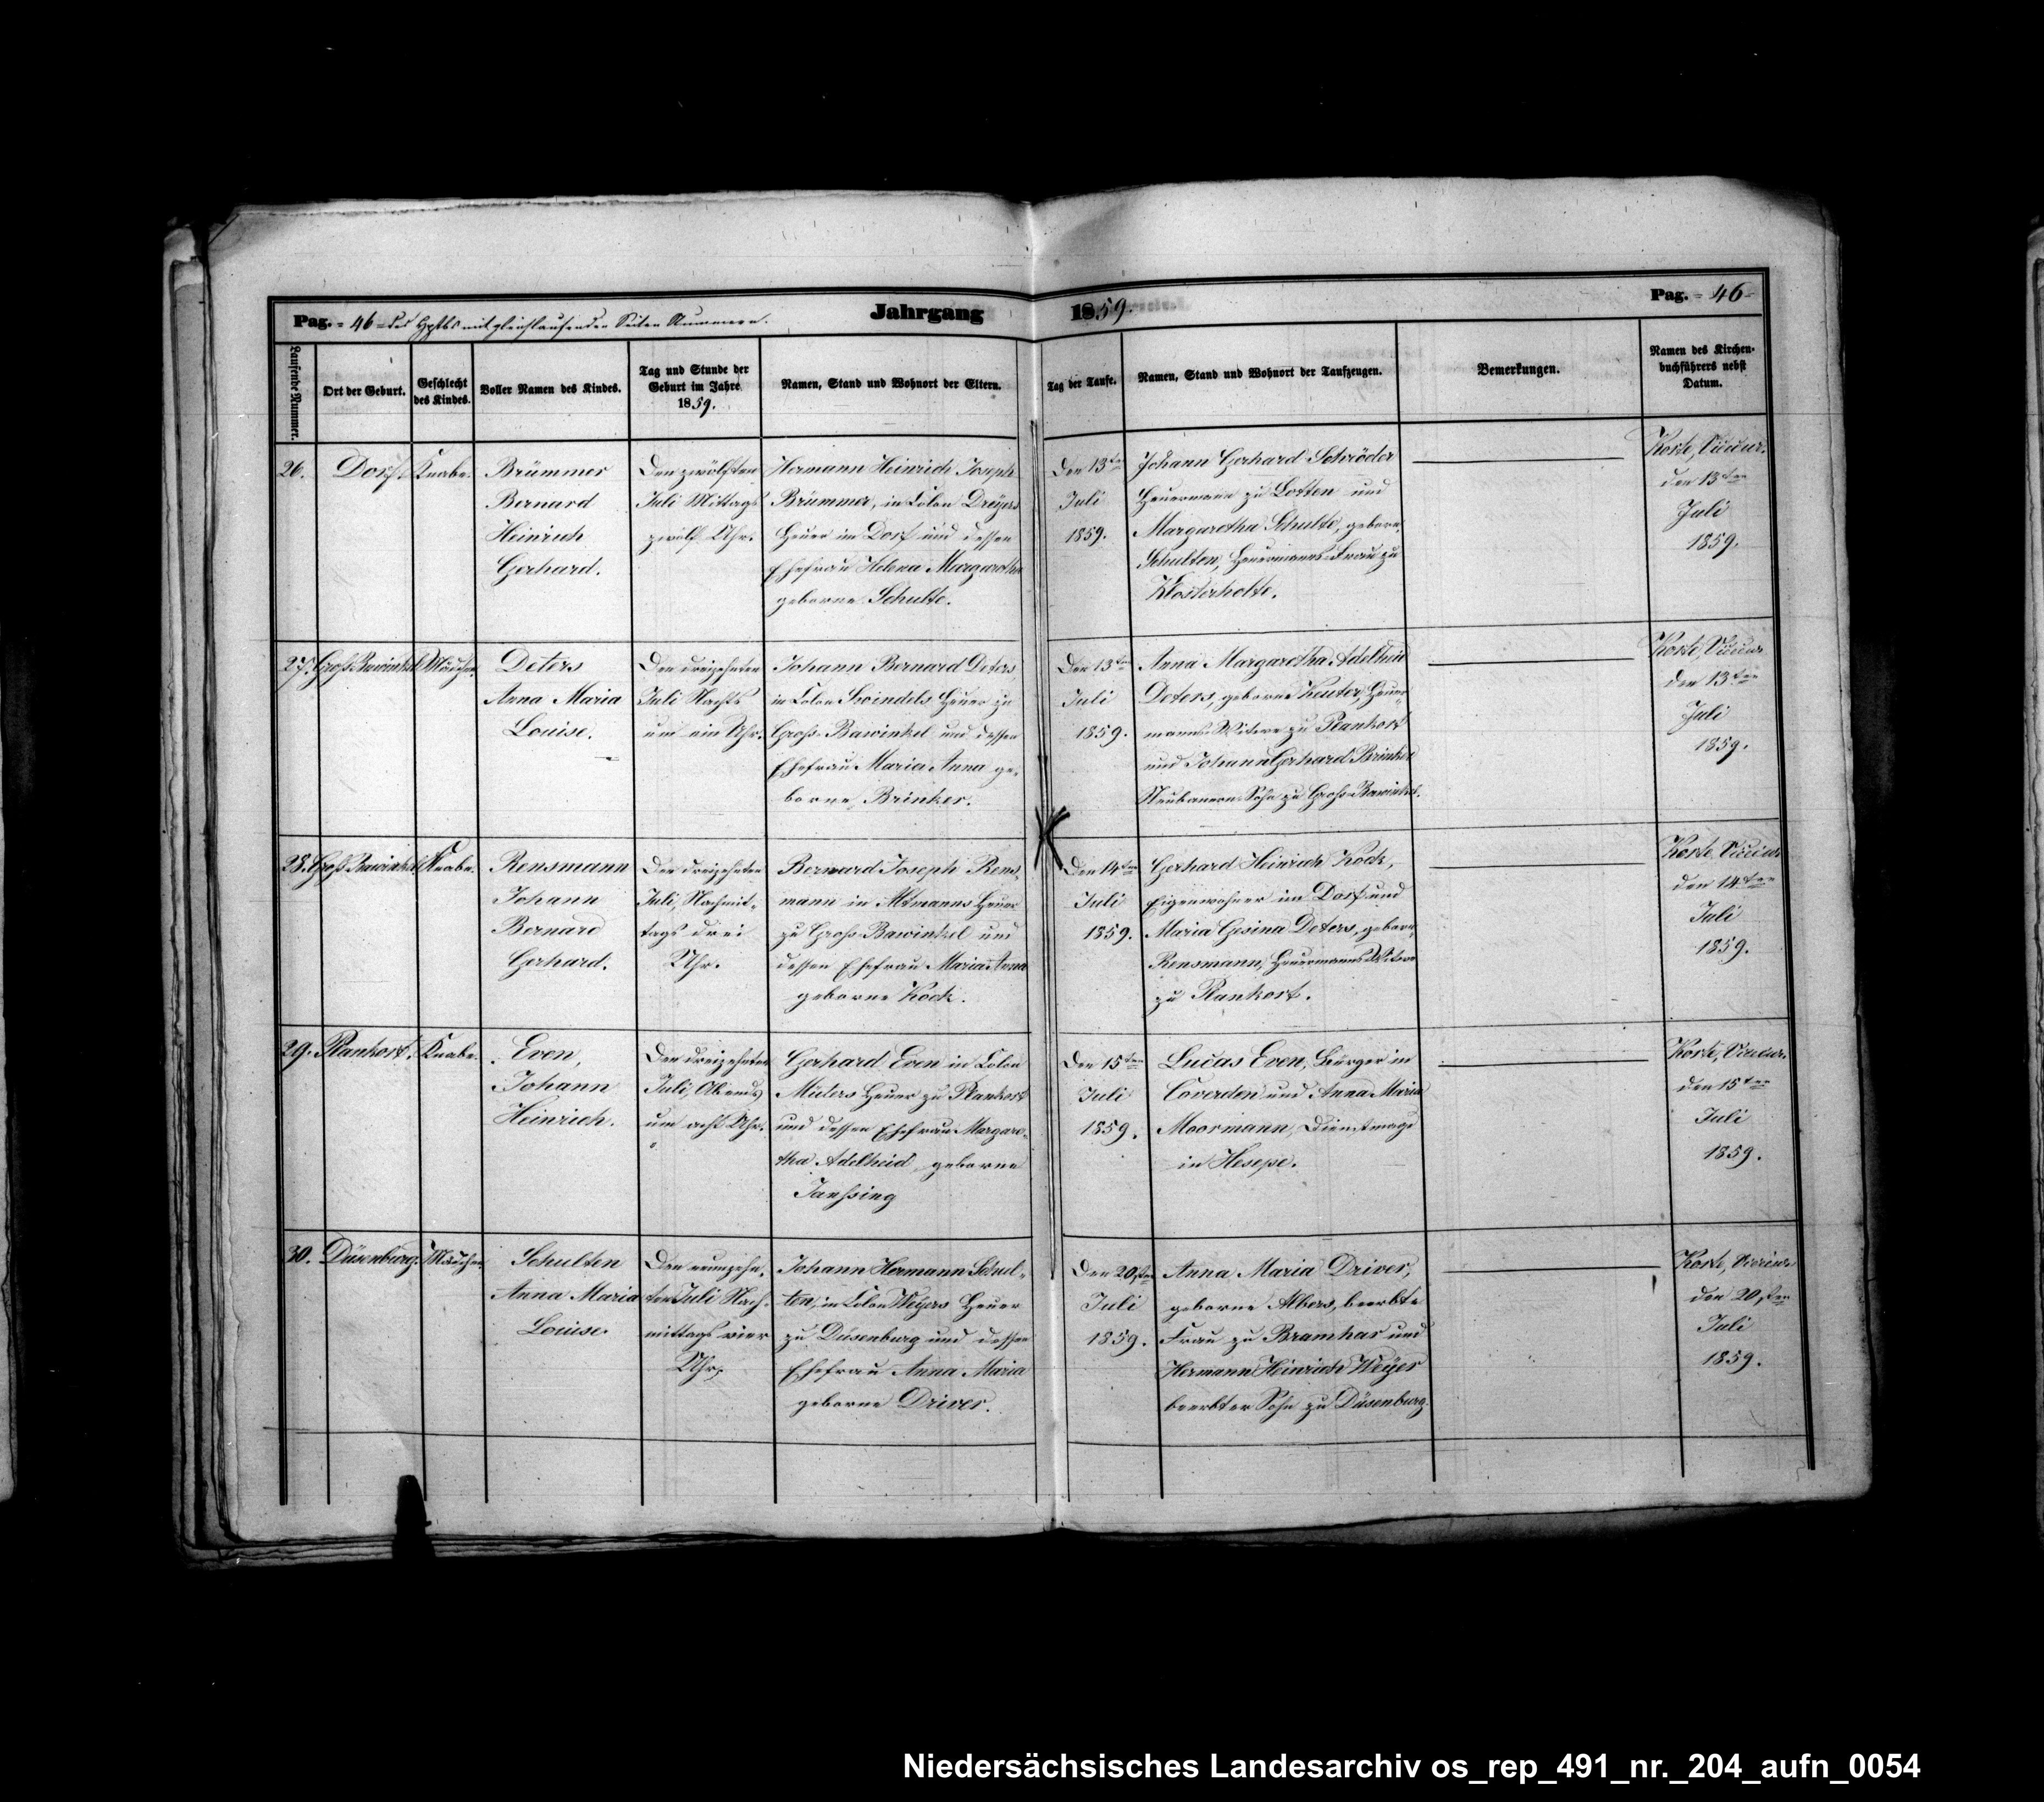 Pag. = 46 = des Hptbs mit gleichlaufenden Seiten Nummern.
Jahrgang 1859.
Pag. = 46 =
Laufende Nummer.
Ort der Geburt.
Geschlecht
des Kindes.
Voller Namen des Kindes.
Tag und Stunde der
Geburt im Jahre
1859.
Namen, Stand und Wohnort der Eltern.
Tag der Taufe.
Namen, Stand und Wohnort der Taufzeugen.
Bemerkungen.
Namen des Kirchen-
buchführers nebst
Datum.
26.
Dorf.
Knabe.
Brümmer
Bernard
Heinrich
Gerhard.
Den zwölften
Juli Mittags
zwölf Uhr.
Hermann Heinrich Joseph
Brümmer, in Colon Dreyers
Heuer im Dorf und dessen
Ehefrau Helena Margaretha
geborne Schulte.
Den 13ten
Juli
1859.
Johann Gerhard Schröder
Heuermann zu Lotten und
Margaretha Schulte, geborn
Schulten, Heuermanns Frau zu
Klosterholte.
Korte, Vicecur.
den 13ten
Juli
1859.
27.
Groß-Bawinkel
Mädchen.
Deters
Anna Maria
Louise.
Den dreizehnten
Juli Nachts
um ein Uhr.
Johann Bernard Deters
in Colon Heuer zu
Groß-Bawinkel und dessen
Ehefrau Maria Anna ge-
borne Brinker.
Den 13ten
Juli
1859.
Anna Margaretha Adelheid
Deters, geborne Keuter, Heuer-
manns Witwe zu Plankort
und Johann Gerhard Brinker
Neubauern Sohn zu Groß-Bawinkel.
Korte, Vicecur
den 13ten
Juli
1859.
28.
Groß-Bawinkel
Knabe.
Rensmann
Johann
Bernard
Gerhard.
Den dreizehnten
Juli, Nachmit-
tags drei
Uhr.
Bernard Joseph Rens-
mann in Altmanns Heuer
zu Groß-Bawinkel und
dessen Ehefrau Maria Anna
geborne Kock.
Den 14ten
Juli
1859.
Gerhard Heinrich Kock,
Eigenwohner im Dorf und
Maria Gesina Deters, geborn
Rensmann, Heuermanns Witwe
zu Plankort.
Korte, Vicecur
den 14ten
Juli
1859.
29.
Plankort.
Knabe.
Even,
Johann
Heinrich.
Den dreizehnten
Juli, Abends
um acht Uhr.
Gerhard Even in Colon
Müters Heuer zu Plankort
und dessen Ehefrau Margare-
tha Adelheid, geborne
Janßing
Den 15ten
Juli
1859.
Lucas Even, Bürger in
Coverden und Anna Maria
Moormann, Dienstmagd
in Hesepe.
Korte, Vicecur.
den 15ten
Juli
1859.
30.
Düsenburg.
Mädchen.
Schulten
Anna Maria
Louise.
Den neunzehn-
ten Juli Nach-
mittags vier
Uhr.
Johann Hermann Schul-
ten, in Colon Weyers Heuer
zu Düsenburg und dessen
Ehefrau Anna Maria
geborne Driver.
Den 20sten
Juli
1859.
Anna Maria Driver,
geborne Albers, beerbte
Frau zu Bramhar und
Hermann Heinrich Weyer
beerbter Sohn zu Düsenburg.
Korte, Vicecur
den 20sten
Juli
1859.
Niedersächsisches Landesarchiv os_rep_491_nr._204_aufn_0054